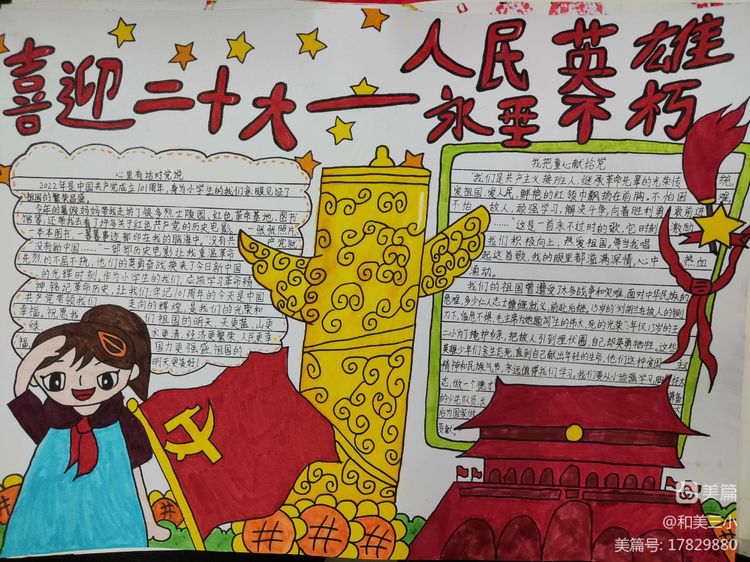 喜迎二十大——人民英雄
永垂不朽
心里有话对党说
2022年是中国共产党成立101周年,身为小学生的我们亲眼见证了
祖国的繁荣昌盛。
今年的暑假妈妈带我走访了很多烈士陵园、红色革命基地、图书
馆等,还带我去看了好多关于红色共产党的历史电影,一张张照片
一本本图书……一幕幕事迹都印在我的脑海中,没有共产党就
没有新中国……一部部历史电影让我重温革命
先烈的不屈不挠,他们的英勇奋战换来了今日新中国
的光辉时刻,作为小学生的我们,应该学习革命精
神,铭记革命历史,让我们一起
共产党带领我们走向的辉煌,是我们的光荣和
幸福,祝愿我们祖国的明天天更蓝、山更
绿、水更清、经济更繁荣人民更幸
福、国力更强盛,祖国的
明天更美好!
我把童心献给党
“我们是共产主义接班人,继承革命先辈的光荣传统,
爱祖国,爱人民,鲜艳的红领巾飘扬在前胸,不怕困难
不怕敌人,顽强学习,解决斗争,向着胜利勇敢前进
……这是一首永不过时的歌,它时刻激励
我们积极向上,热爱祖国,每当唱
起这首歌,我的眼里都溢满深情,心中热血
涌动。
我们的祖国曾遭受了太多战争和灾难,面对中华民族的
危难,多少仁人志士慷慨就义,前赴后继,15岁的刘胡兰在敌人的铡
刀下,临危不惧,毛主席为她题词“生的伟大,死的光荣”;年仅13岁的王
二小为了掩护乡亲,把敌人引到埋伏圈,自己却英勇牺牲,这些
英雄少年们舍生忘死,直到自己献出年轻的生命,他们这种爱国主义
精神和民族气节,永远值得我们学习,我们要从小顽强学习,胸怀大
志,做一个德才兼备
的少先队员,长
后为国家做
贡献。
美篇
@和美三小
美篇号: 17829880